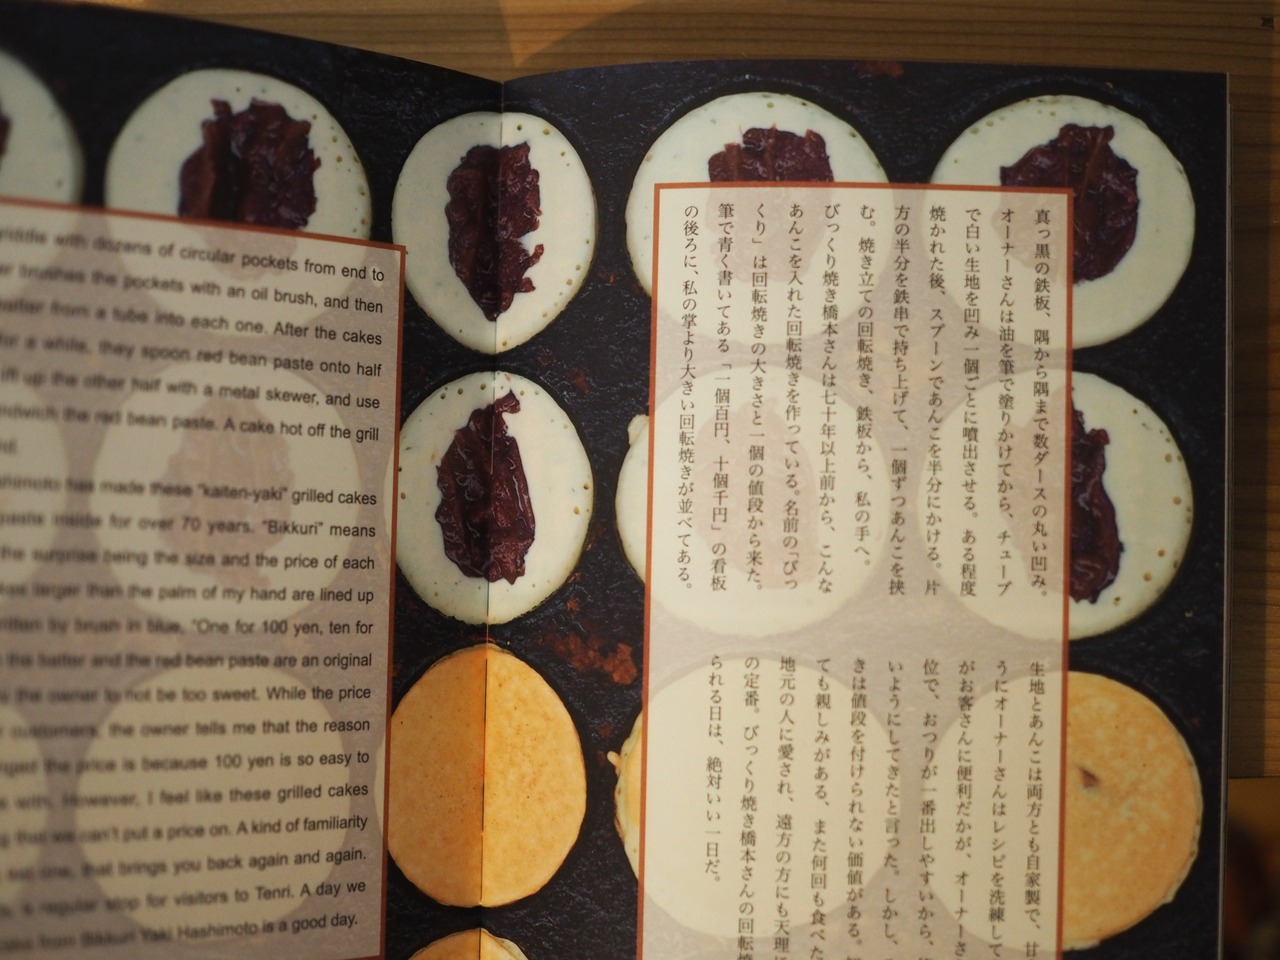 griddle with dozens of circular pockets from end to
brushes the pockets with an oil brush, and then
batter from a tube into each one. After the cakes
for a while, they spoon red bean paste onto half
lift up the other half with a metal skewer, and use
sandwich the red bean paste. A cake hot off the grill
Hashimoto has made these "kaiten-yaki" grilled cakes
paste inside for over 70 years. "Bikkuri" means
the surprise being the size and the price of each
larger than the palm of my hand are lined up
written by brush in blue, "One for 100 yen, ten for
the batter and the red bean paste are an original
the owner to not be too sweet. While the price
customers, the owner tells me that the reason
the price is because 100 yen is so easy to
with. However, I feel like these grilled cakes
that we can't put a price on. A kind of familiarity
that brings you back again and again.
a regular stop for visitors to Tenri. A day we
cake from Bikkuri Yaki Hashimoto is a good day.
真っ黒の鉄板、隅から隅まで数ダースの丸い凹み。
オーナーさんは油を筆で塗りかけてから、チューブ
で白い生地を凹み一個ごとに噴出させる。ある程度
焼かれた後、スプーンであんこを半分にかける。片
方の半分を鉄串で持ち上げて、一個ずつあんこを挟
む。焼き立ての回転焼き、鉄板から、私の手へ。
びっくり焼き橋本さんは七十年以上前から、こんな
あんこを入れた回転焼きを作っている。名前の「びっ
くり」は回転焼きの大きさと一個の値段から来た。
筆で青く書いてある「一個百円、十個千円」の看板
の後ろに、私の掌より大きい回転焼きが並べてある。
生地とあんこは両方とも自家製で、甘
うにオーナーさんはレシピを洗練して
がお客さんに便利だかが、オーナーさ
位で、おつりが一番出しやすいから、
いようにしてきたと言った。しかし、
きは値段を付けられない価値がある。
ても親しみがある、また何回も食べた
地元の人に愛され、遠方の方にも天理
の定番。びっくり焼き橋本さんの回転
られる日は、絶対いい一日だ。